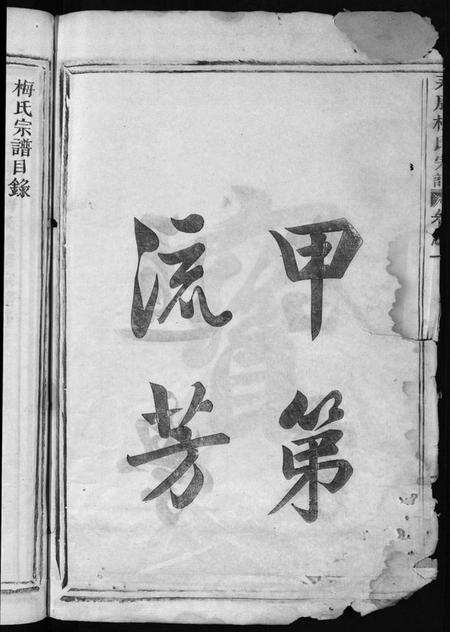 梅氏宗譜
甲第
流芳
梅氏宗譜目錄